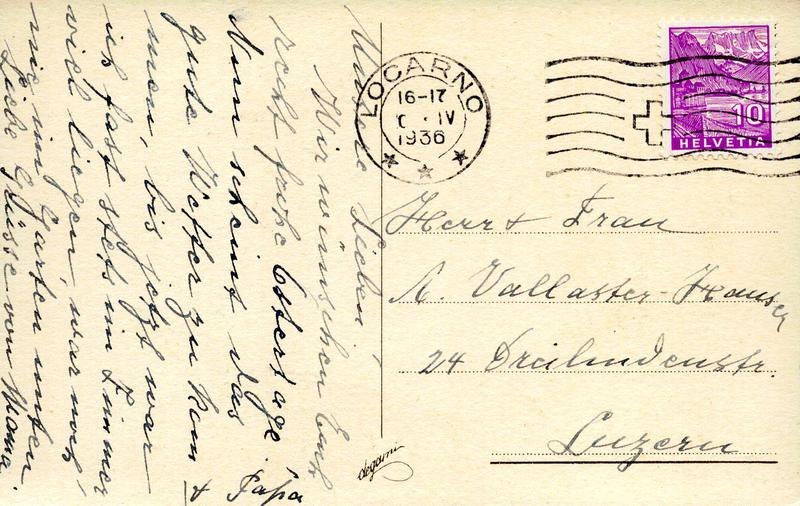 Unsere Lieben,
Wir wünschen Euch
recht frohe Ostertage.
Nun scheint das
gute Wetter zu kom
men, bis jetzt war
ich fast stets im Zimmer
viel liegen, war noch
nie im Garten unten
Liebe Grüsse von Mama.
+ Papa
LOCARNO
16-17
IV
1936
10
HELVETIA
Herr & Frau
A. Vallaster-Hauser
24 Dreilindenstr.
Luzern
degami